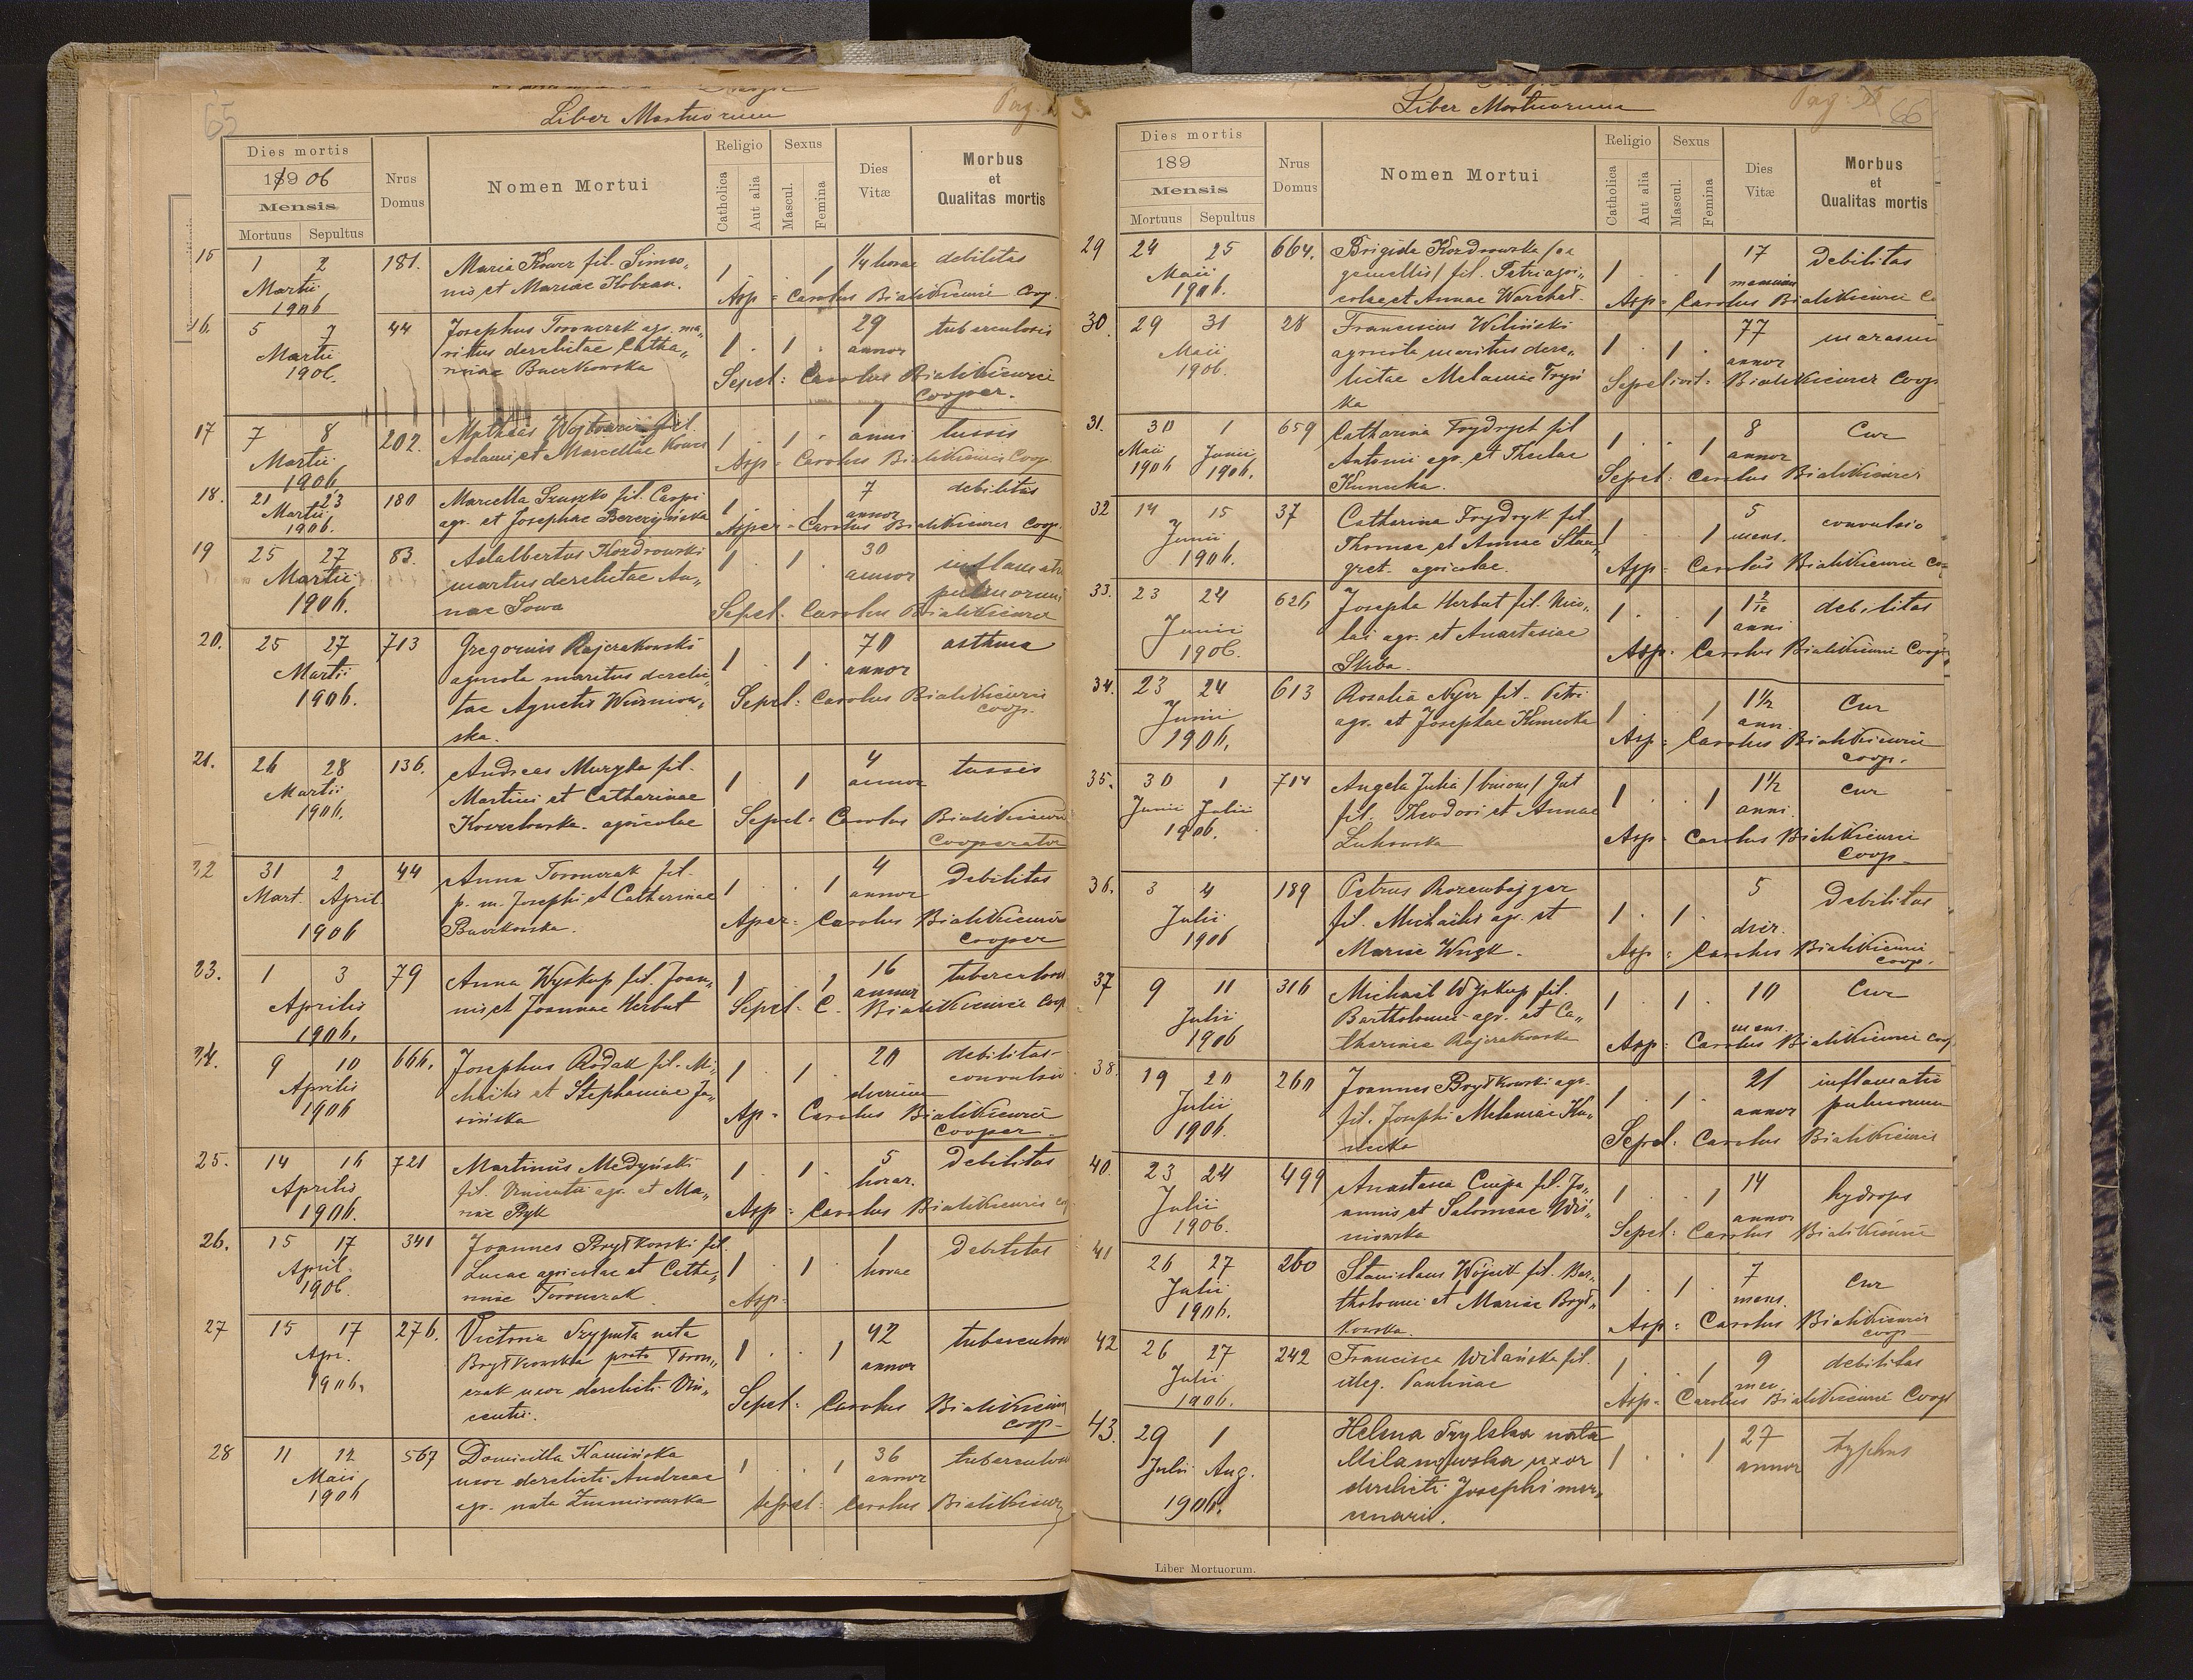 65
Liber Mortuorum
Pag.
Dies mortis
1906
Mensis
Mortuus Sepultus
Nrus Domus
Nomen Mortui
Religio
Catholica
Aut alia
Sexus
Mascul.
Femina
Dies Vitæ
Morbus et Qualitas mortis
15 1 2 181. Maria Kower fil. Simeo- 1 1 1/4 horae debilitas
Martii nis et Mariae Kobzan. Asp = Carolus Bialikiewicz Coop.
1906
16. 5 7 44 Josephus Toronczak agr. ma- 1 1 29 tuberculosis
Martii ritus derelictae Catha- annor
1906. rinae Buczkowska Sepel: Carolus Bialikiewicz
cooper.
17 7 8 202. Mathias Wojtowicz fil. 1 1 1 anni tussis
Martii Adami et Marcellae Kower Asp = Carolus Bialikiewicz Coop
1906
18. 21 23 180 Marcella Szuszko fil. 1 1 7 debilitas
Martii agr. et Josephae Berezyńska annor
1906. Asper = Carolus Bialikiewicz Coop.
19 25 27 83. Adalbertus Kozdrowski 1 1 30 inflamatio
Martii maritus derelictae An- annor pulmorum
1906. nae Sowa Sepel. Carolus Bialikiewicz
20. 25 27 713 Gregorius Rajczakowski 1 1 70 asthma
Martii agricola maritus derelic- annor
1906. tae Agnetis Wiśniow- Sepel: Carolus Bialikiewicz
ska. coop.
21. 26 28 136. Andreas Muryka fil. 1 1 4 tussis
Martii Martini et Catharinae annor
1906. agricolae Sepel: Carolus Bialikiewicz
cooperator
22 31 2 44 Anna Toronczak fil. 1 1 4 debilitas
Mart. April. p. m. Josephi et Catherinae annor
1906 Buczkowska. Asper: Carolus Bialikiewicz
cooper
23. 1 3 79 Anna Wyskup fil. Joan- 1 1 16 tuberculosis
Aprilis nis et Joannae Herbut annor
1906. Sepel: C. Bialikiewicz Coop
24. 9 10 666. Josephus Rodak fil. Mi- 1 1 20 debilitas-
Aprilis chaelis et Stephaniae Ja- dierum convulsio
1906 sińska Ap = Carolus Bialikiewicz
cooper.
25. 14 16 721 Martinus Medyński 1 1 5 debilitas
Aprilis fil. Vincentii agr. et Ma- horar.
1906. riae Byk Asp = Carolus Bialikiewicz
26. 15 17 341 Joannes Brytkowski fil. 1 1 1 debilitas
April. Lucae agricolae et Catha- horae
1906. rinae Toronczak Asp.
27 15 17 276. Victoria Trzyputa nata 1 1 42 tuberculosis
Apr. Brytkowska Toron- annor
1906. czak uxor derelicti Vin- Sepel: Carolus Bialikiewicz
centii. coop.
28 11 12 567 Domicella Kamińska 1 1 36 tuberculosis
Maii uxor derelicti Andreae annor
1906 agr. nata Sepel: Carolus Bialikiewicz
Liber Mortuorum
Pag:
66
Dies mortis
189
Mensis
Mortuus Sepultus
Nrus Domus
Nomen Mortui
Religio
Catholica
Aut alia
Sexus
Mascul.
Femina
Dies Vitæ
Morbus et Qualitas mortis
29 24 25 664. Brigida Kozdrowska /ex 1 1 17 debilitas
Maii gemellis/ fil. Petri agri- mensium
1906. colae et Annae Warchał. Asp = Carolus Bialikiewicz
30. 29 31 28 Franciscus Wiliński 1 1 77 marasm
Maii agricola maritus dere- annor
1906. lictae Melaniae Tryń Sepelivit: Bialikiewicz Coop
ska
31. 30 1 659 Catharina Frydryck fil 1 1 8 Cur
Maii Junii Antonii agr. et Theclae annor
1906 1906. Kunicka. Sepel: Carolus Bialikiewicz
32 14 15 37 Catharina Frydryk fil. 1 1 5 convulsio
Junii Thomae et Annae Stan- mens.
1906. gret. agricolae. Asp = Carolus Bialikiewicz
33. 23 24 626 Josepha Herbut fil. Nico- 1 1 1 2/12 debilitas
Junii lai agr. et Anastasiae anni
1906. Skiba. Asp. Carolus Bialikiewicz Coop
34. 23 24 613 Rosalia Nycz fil. Petri 1 1 1 1/2 Cur
Junii agr. et Josephae Kunicka ann.
1906. Asp = Carolus Bialikiewicz
coop.
35. 30 1 714 Angela Julia /binom/ Gut 1 1 1 1/2 cur
Junii Julii fil. Theodori et Annae anni.
1906. Lukowska Asp = Carolus Bialikiewicz
Coop
36. 3 4 189 Petrus Rozenbajger 1 1 5 Debilitas
Julii fil. Michaelis agr. et dier.
1906 Mariae Wnęk. Asp = Carolus Bialikiewicz
coop.
37 9 11 316 Michael Wyskup fil. 1 1 10 Cur
Julii Bartholomei agr. et Ca- mens.
1906 tharinae Rajczakowska Asp = Carolus Bialikiewicz Coop
38. 19 20 260 Joannes Brytkowski agr. 1 1 21 inflamatio
Julii fil. Josephi Melaniae Ku- annor pulmorum
1906. nicka Sepel: Carolus Bialikiewicz
40. 23 24 499 Anastasia Czepa fil. Jo- 1 1 14 hydrops
Julii annis et Salomeae Wiś- annor
1906. niowska Sepel: Carolus Bialikiewicz
41 26 27 260 Stanislaus Wójcik fil. Bar- 1 1 7 Cur
Julii tholomei et Mariae Bryt- mens.
1906. kowska. Asp = Carolus Bialikiewicz
coop
42 26 27 242 Francisca Wilańska fil. 1 1 9 debilitas
Julii illeg. Paulinae men.
1906. Asp = Carolus Bialikiewicz Coop
43. 29 1 Helena Trylska nata 1 1 27 typhus
Julii Aug. Milanowska uxor annor
1906. derelicti Josephi mer-
cenarii.
Liber Mortuorum.